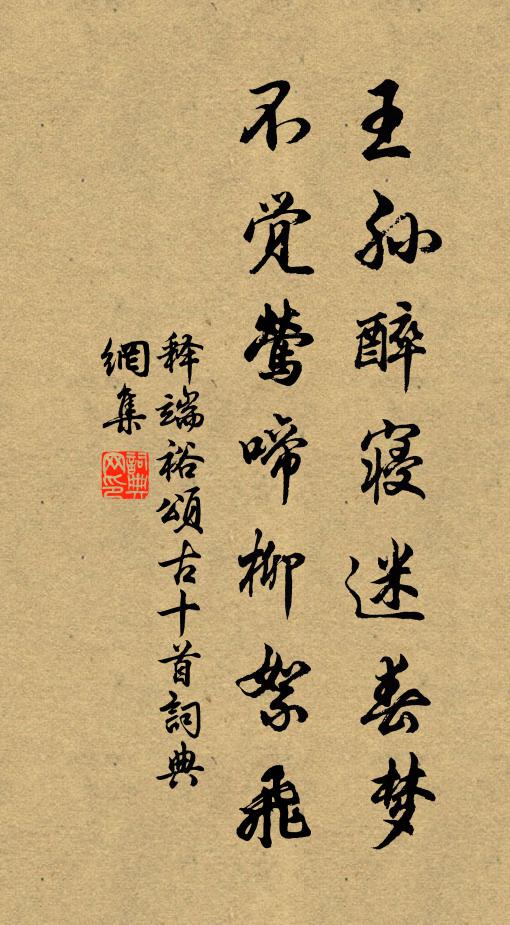 王孙醉寝迷春梦
不觉莺啼柳絮飞
释端裕颂古十首詞典
網集
詞典
网印